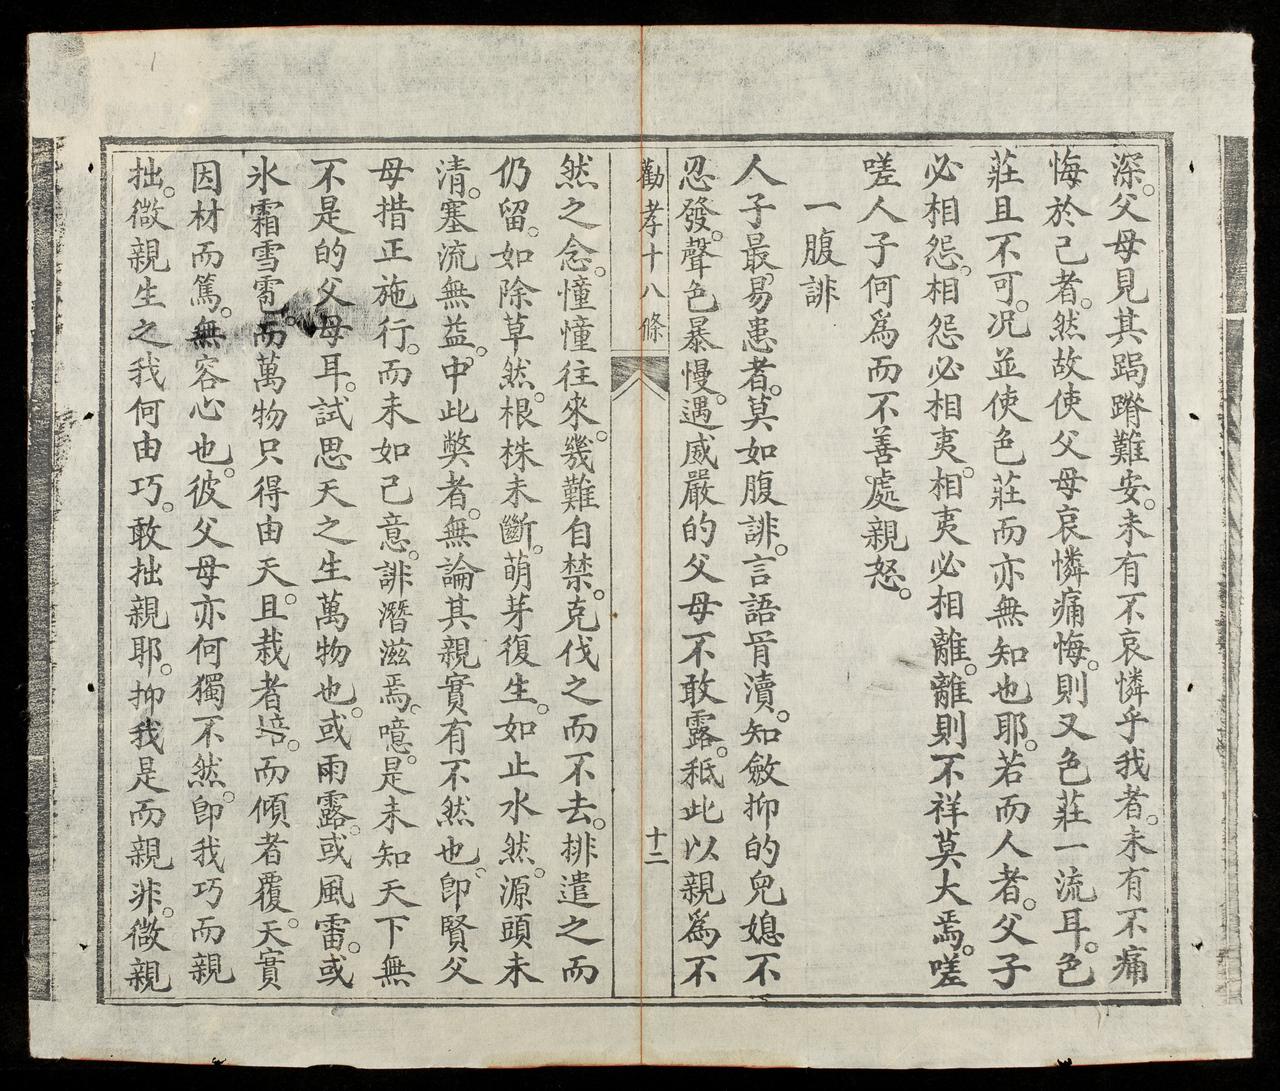 深。父母見其跼蹐難安。未有不哀憐乎我者。未有不痛
悔於己者。然故使父母哀憐痛悔。則又色莊一流耳。色
莊且不可。况並使色莊而亦無知也耶。若而人者。父子
必相怨。相怨必相夷。相夷必相離。離則不祥莫大焉。嗟
嗟人子何爲而不善處親怒。
一腹誹
人子最易患者。莫如腹誹。言語胥瀆。知斂抑的兒媳不
忍發。聲色暴慢。遇威嚴的父母不敢露。秪此以親爲不
勸孝十八條
十二
然之念。憧憧往來。幾難自禁。克伐之而不去。排遣之而
仍留。如除草然。根株未斷。萌芽復生。如止水然。源頭未
清。塞流無益。中此弊者。無論其親實有不然也。卽賢父
母措正施行。而未如己意。誹潛滋焉。噫。是未知天下無
不是的父母耳。試思天之生萬物也。或雨露。或風雷。或
氷霜雪雹。而萬物只得由天。且栽者培。而傾者覆。天實
因材而篤。無容心也。彼父母亦何獨不然。卽我巧而親
拙。微親生之我何由巧。敢拙親耶。抑我是而親非。微親